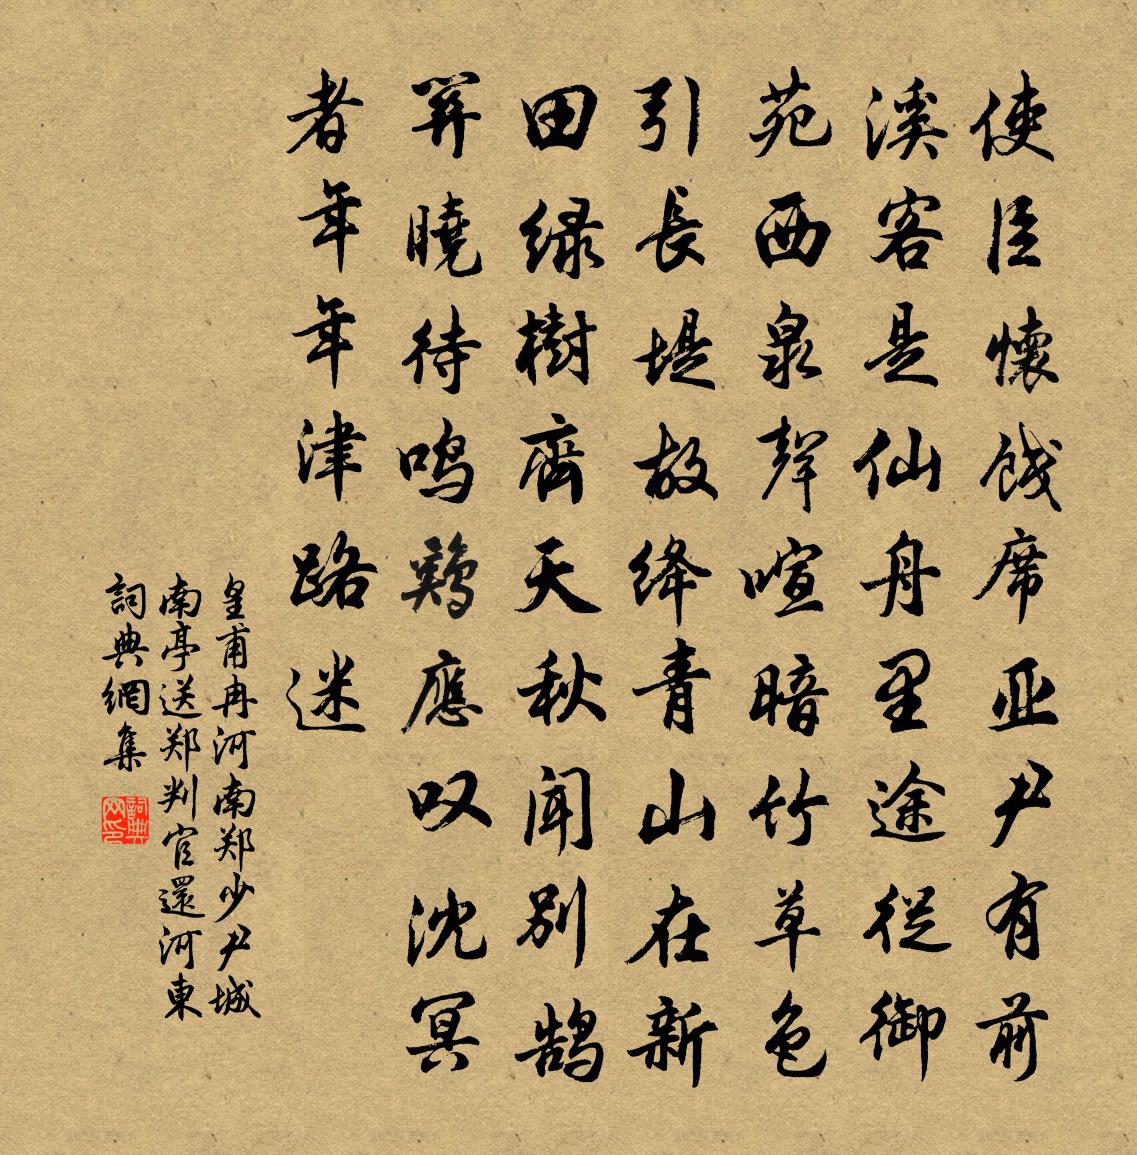 使臣懷餞席亚尹有前
溪客是仙舟里途從御
苑西泉聲喧暗竹草色
引長堤故绛青山在新
田绿樹齊天秋闻别鹄
关曉待鸣鷄應叹沈冥
者年年津路迷
皇甫冉河南郑少尹城
南亭送郑判官還河東
詞典網集
詞典网印